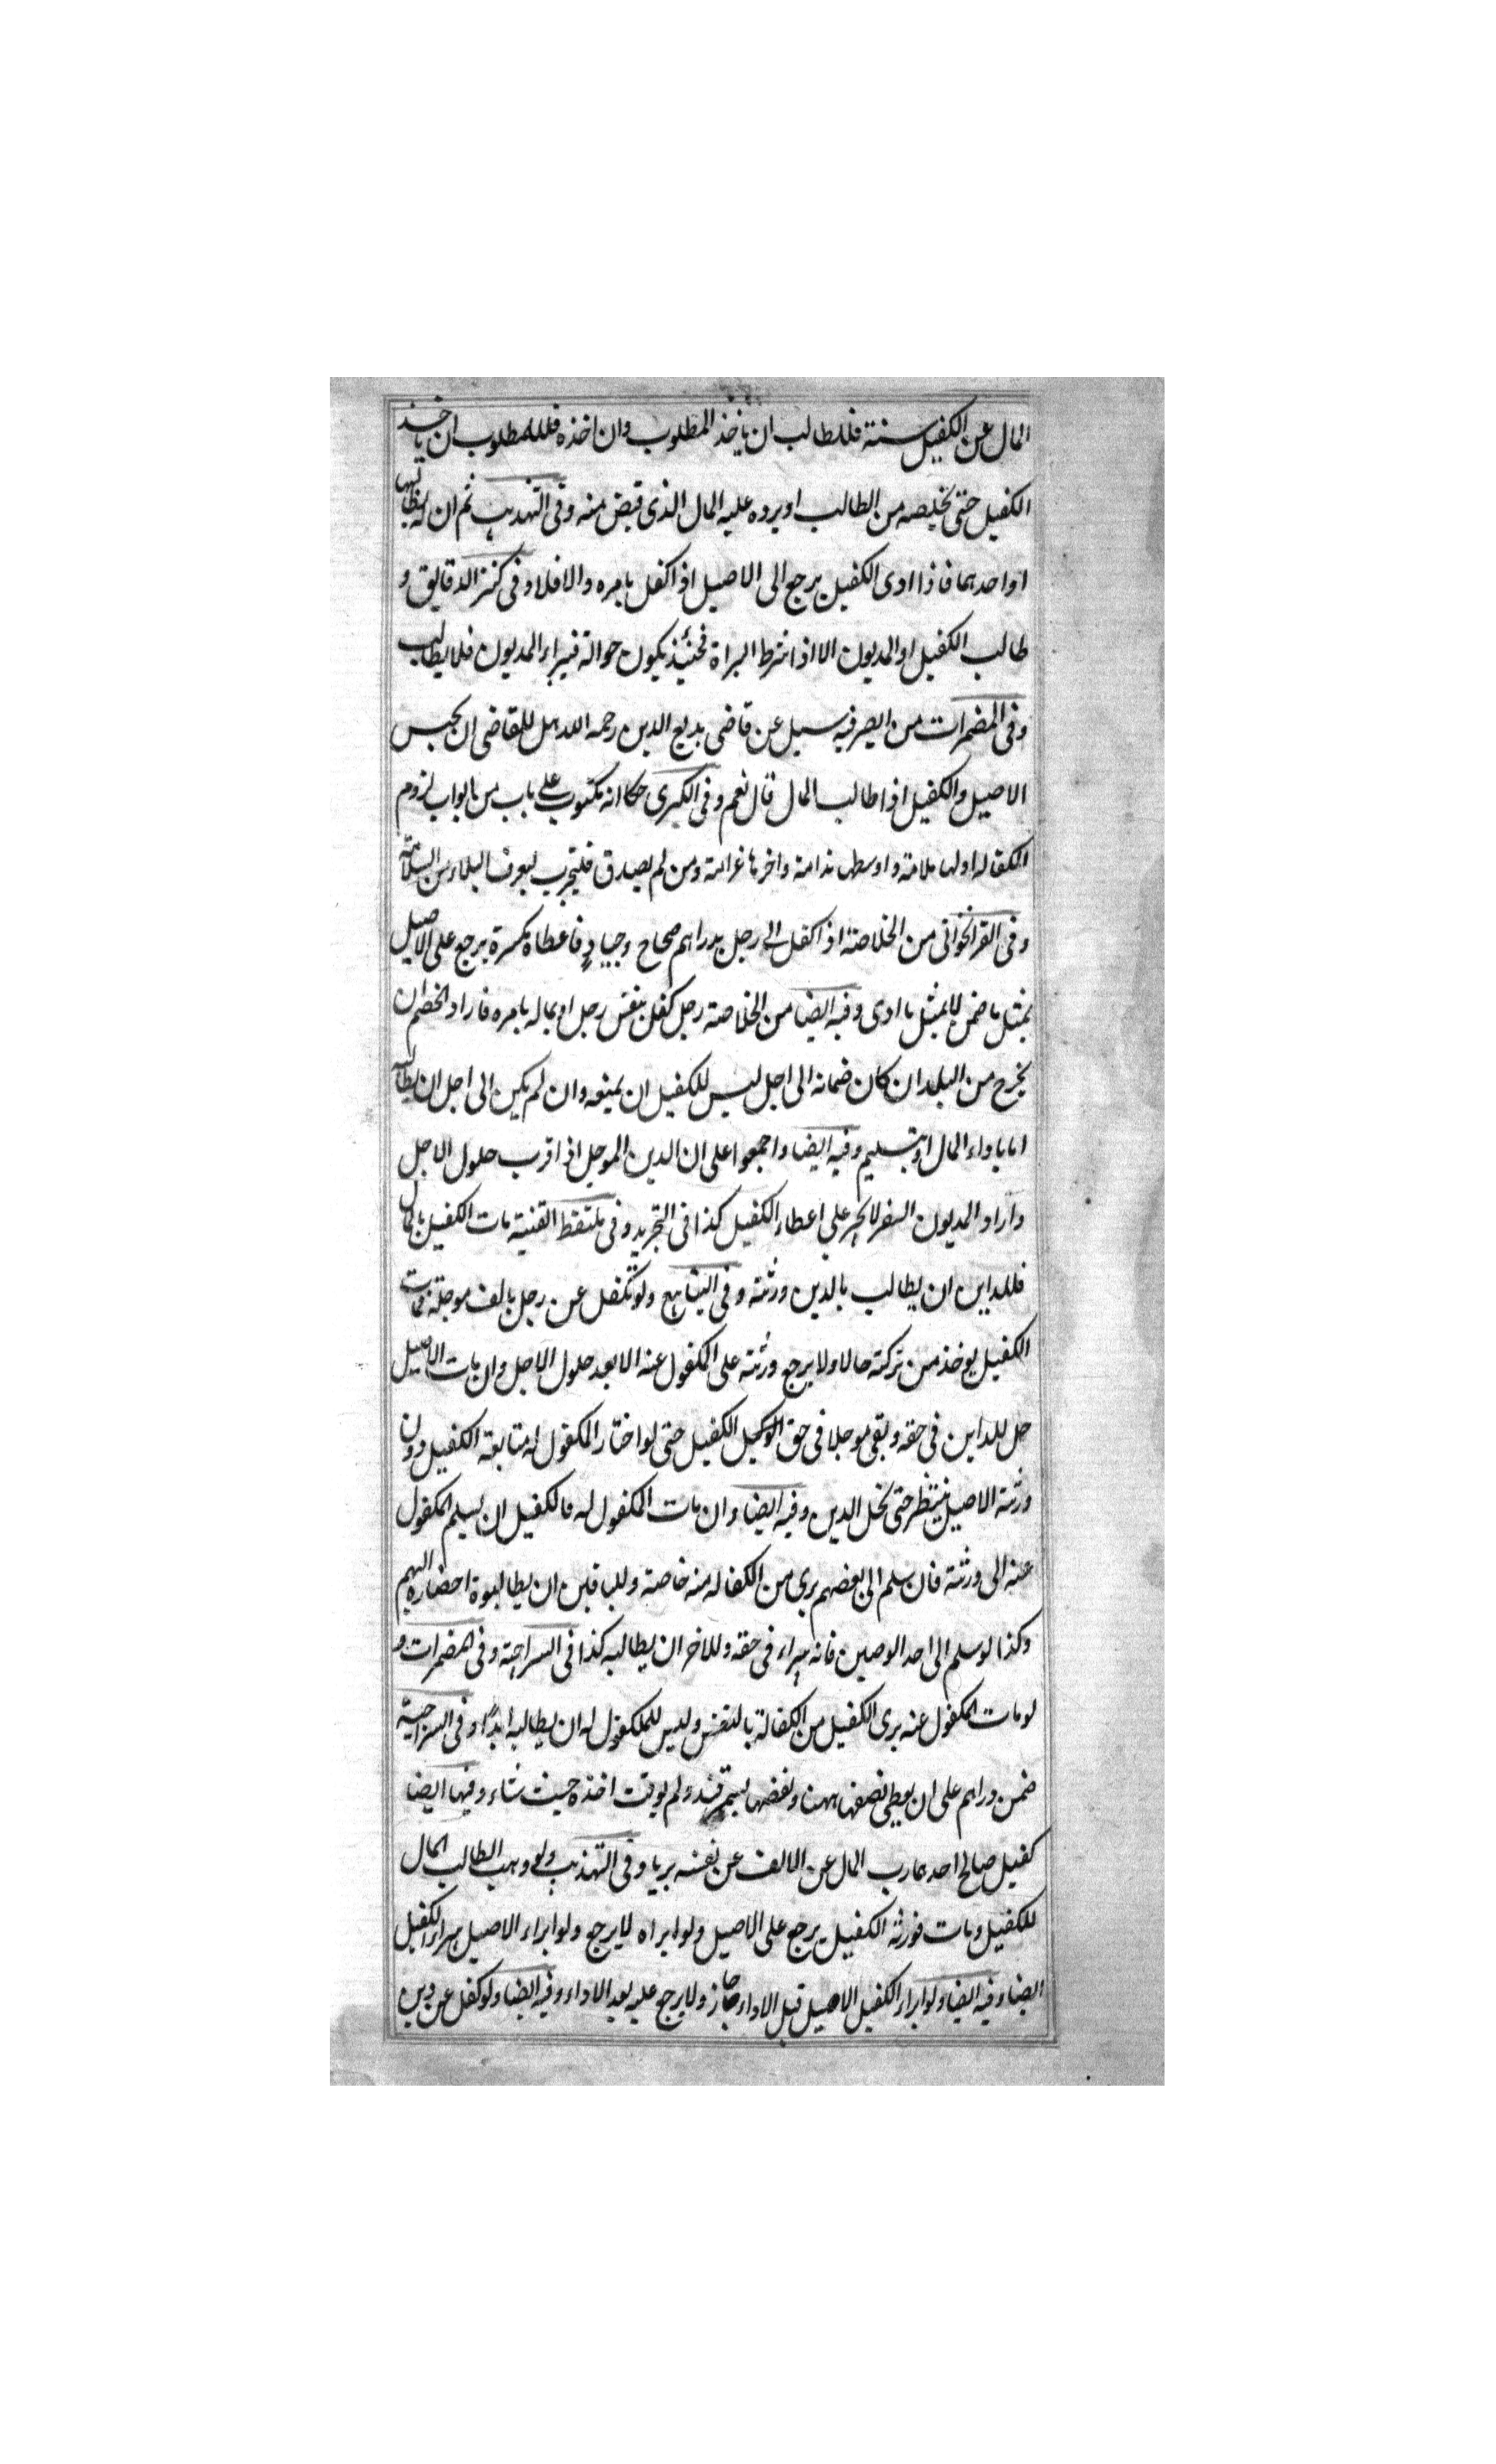 المال عن الكفيل سنة فللطالب ان ياخذ المطلوب وان اخذه فللمطلوب ان ياخذ
الكفيل حتى يخلصه من الطالب او يرده عليه المال الذى قبض منه وفى التهذيب ثم ان له يطالبهما
او احدهما فاذا ادى الكفيل يرجع الى الاصيل اذا كفل بامره والا فلا وفى كنز الدقايق و
طالب الكفيل او المديون الا اذا شرط البراة فحينئذ يكون حوالة فيبراء المديون فلا يطالب
وفى المضمرات من الصرفيه سيل عن قاضى بديع الدين رحمه الله هل للقاضى ان يحبس
الاصيل والكفيل اذا طالب المال قال نعم وفى الكبرى حكا انه مكتوب على باب من ابواب لزوم
الكفاله اولها ملامة واوسطها ندامة واخرها غرامة ومن لم يصدق فليجرب ليعرف البلاء من السلامة
وفى القراخوانى من الخلاصة اذا كفل الى رجل بدراهم صحاح وجياد فاعطاه مكسرة يرجع على الاصيل
بمثل ما ضمن لا بمثل ما ادى وفيه ايضا من الخلاصة رجل كفل بنفس رجل او بماله بامره فاراد الخصم ان
يخرج من البلد ان كان ضمانه الى اجل ليس للكفيل ان يمنعه وان لم يكن الى اجل ان يطالبه
اما باداء المال او بتسليم وفيه ايضا واجمعوا على ان الدين الموجل اذا قرب حلول الاجل
واراد المديون السفر لا يجبر على اعطاء الكفيل كذا فى التجريد وفى ملتقط القنية مات الكفيل بالمال
فللداين ان يطالب بالدين ورثته وفى الينابيع ولو تكفل عن رجل بالف موجلة فمات
الكفيل يوخذ من تركته حالا ولا يرجع ورثته على المكفول عنه الا بعد حلول الاجل وان مات الاصيل
حل للداين فى حقه وبقى موجلا فى حق الوكيل الكفيل حتى لو اختار المكفول له متابعة الكفيل دون
ورثة الاصيل ينتظر حتى يحل الدين وفيه ايضا وان مات المكفول له فالكفيل ان يسلم المكفول
عنه الى ورثته فان سلم الى بعضهم برى من الكفاله منه خاصة وللباقين ان يطالبوه احضاره اليهم
وكذا لو سلم الى احد الوصين فانه يبراء فى حقه وللاخر ان يطالبه كذا فى السراجية وفى المضمرات و
لو مات المكفول عنه برى الكفيل من الكفالة بالنفس وليس للمكفول له ان يطالبه ابدًا وفى السراجية
ضمن دراهم على ان يعطى نصفها ههنا ونصفها بسمرقند ولم يوقت اخذه حيث شاء وفيها ايضا
كفيل صالح احد رب المال عن الالف عن نفسه بريا وفى التهذيب ولو وهب الطالب المال
للكفيل ومات فورثه الكفيل يرجع على الاصيل ولو ابراه لا يرجع ولو ابراء الاصيل يبراء الكفيل
ايضا وفيه ايضا ولو ابراء الكفيل الاصيل قبل الاداء جاز ولا يرجع عليه بعد الاداء وفيه ايضا ولو كفل عن دين